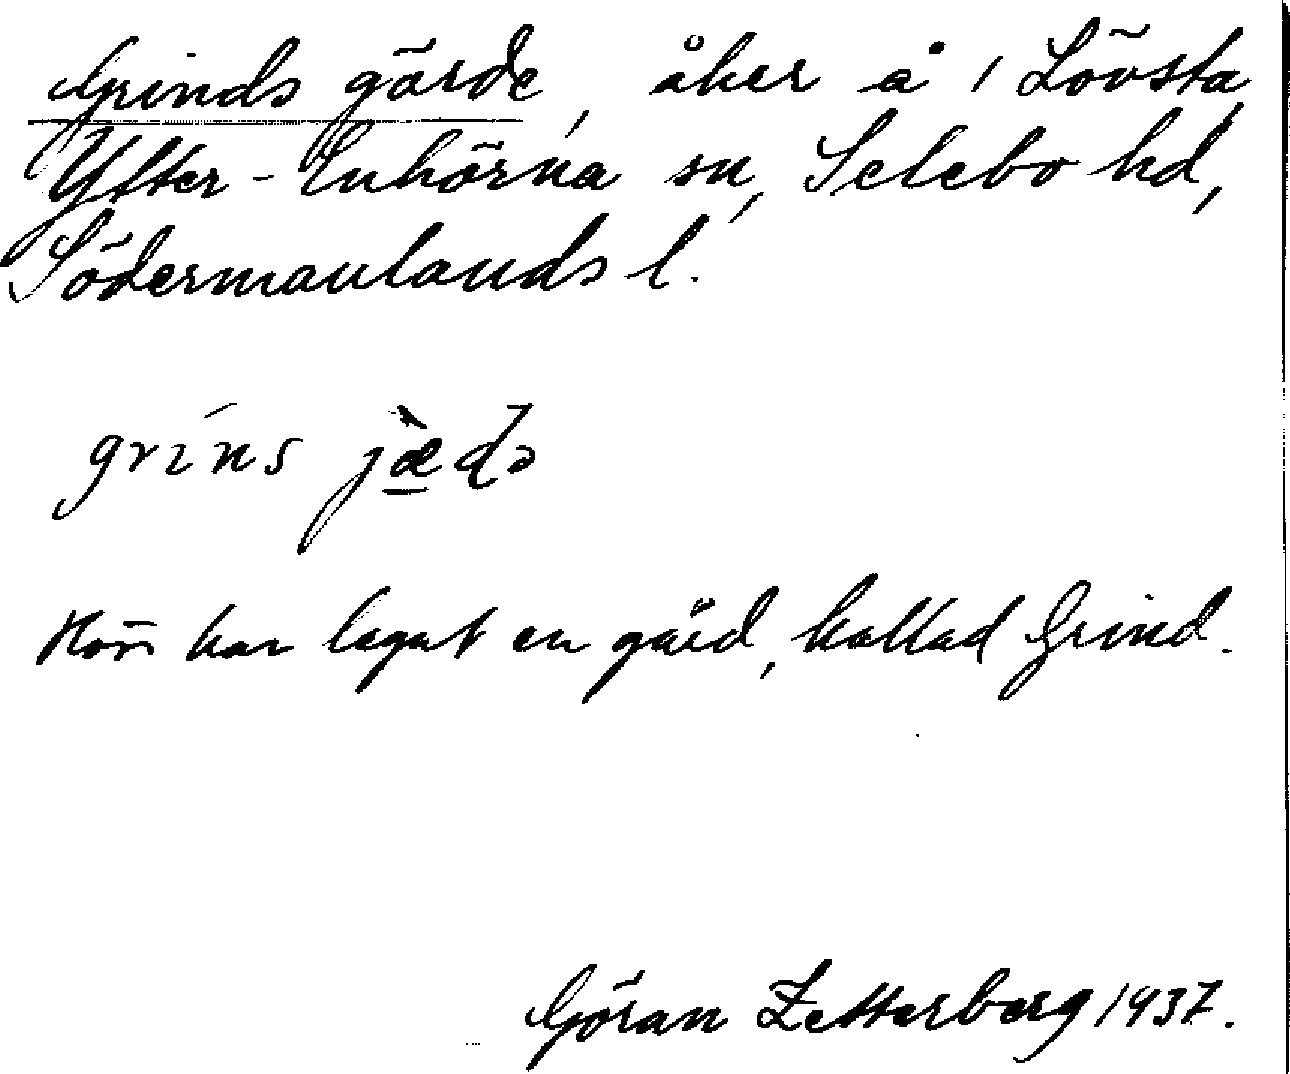 Grinds gärde, åker å 1 Lövsta,
Ytter-Enhörna sn, Selebo hd,
Södermanlands l.
gri´ns jæ̀ḍə
Här har legat en gård, kallad Grind.
Göran Zetterberg 1937.